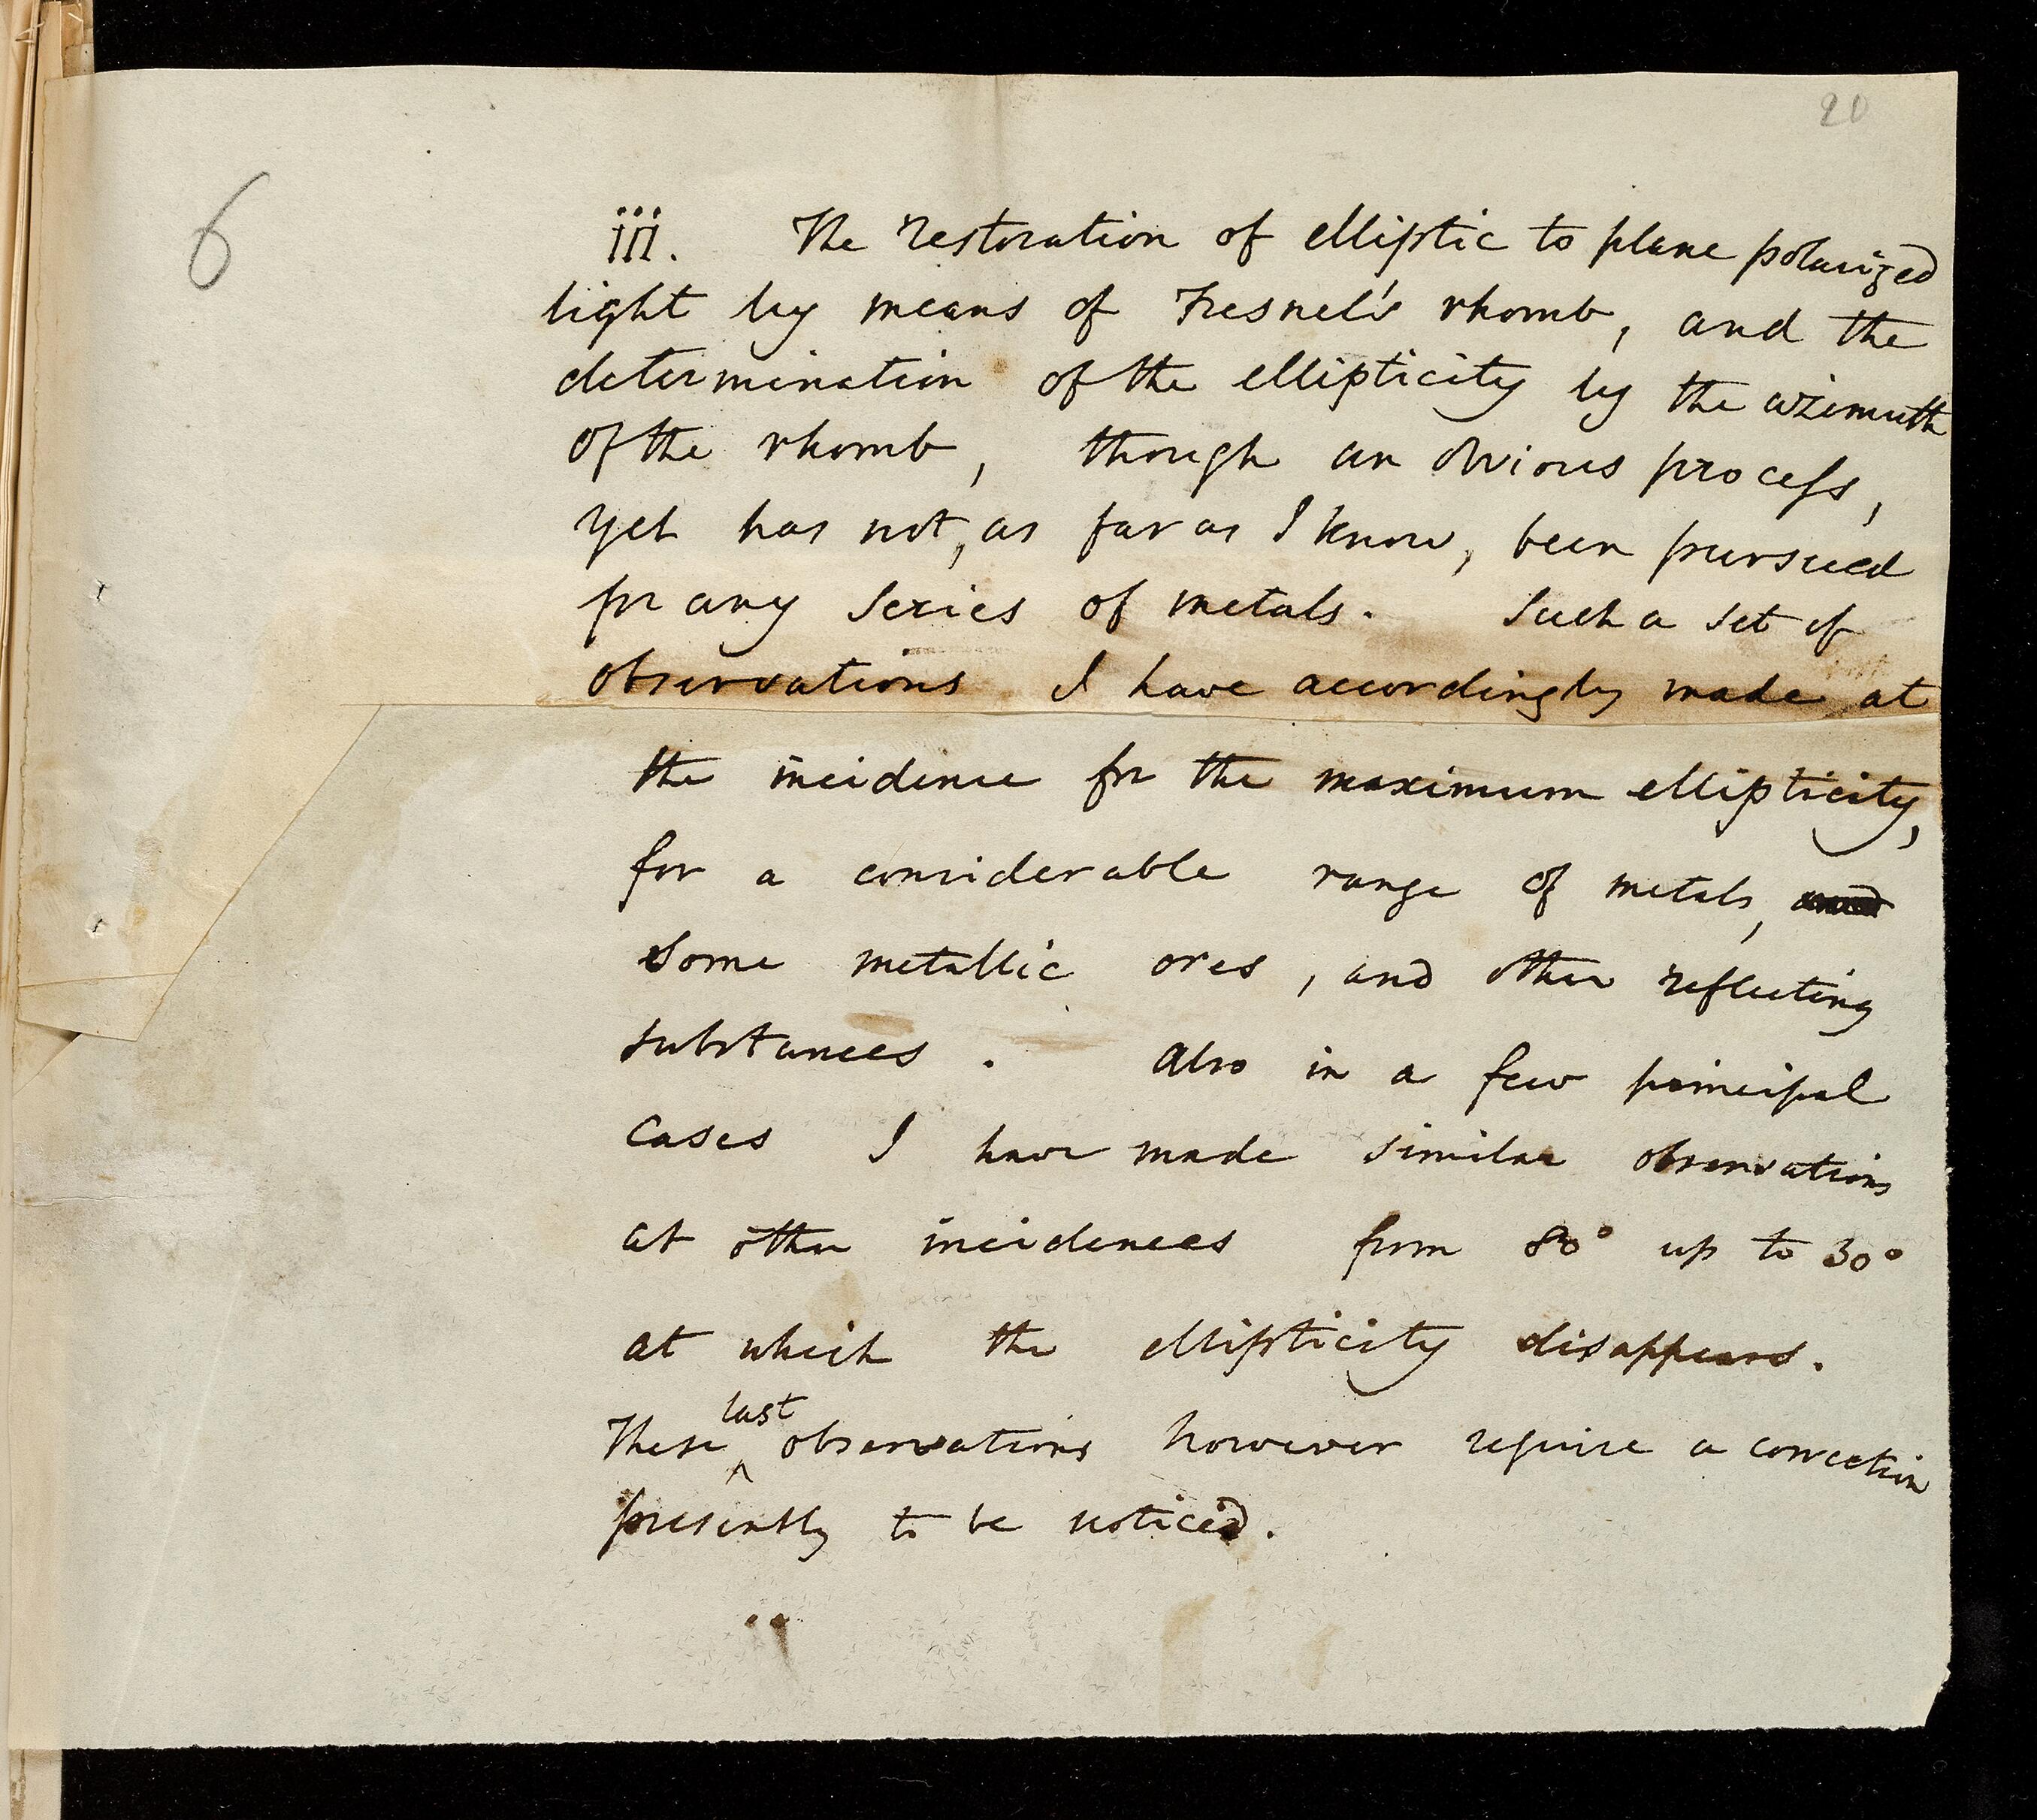 20
6
iii. The restoration of elliptic to plane polarized
light by means of Fresnel's rhomb, and the
determination of the ellipticity by the azimuth
of the rhomb, though an obvious process,
yet has not, as far as I know, been pursued
for any series of metals. Such a set of
observations I have accordingly made at
the incidence for the maximum ellipticity,
for a considerable range of metals,
some metallic ores, and other reflecting
substances. Also in a few principal
cases I have made similar observations
at other incidences from 80° up to 30°
at which the ellipticity disappears.
These last observations however require a correction
presently to be noticed.